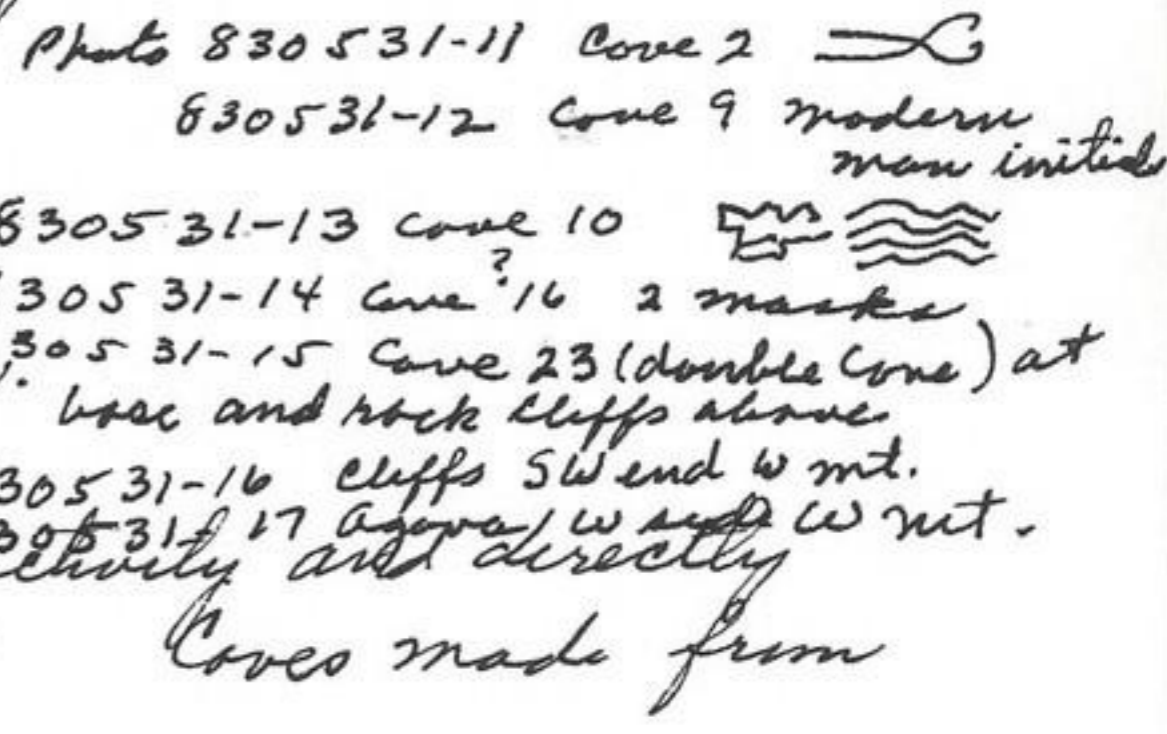 Photo 830531-11 Cave 2
830531-12 Cave 9 modern
man initials
830531-13 Cave 10
?
30531-14 Cave 16 2 masks
30531-15 Cave 23 (double Cave) at
base and rock cliffs above
30531-16 Cliffs SW end W mt.
30531-17 W side W mt.
and directly
Caves made from